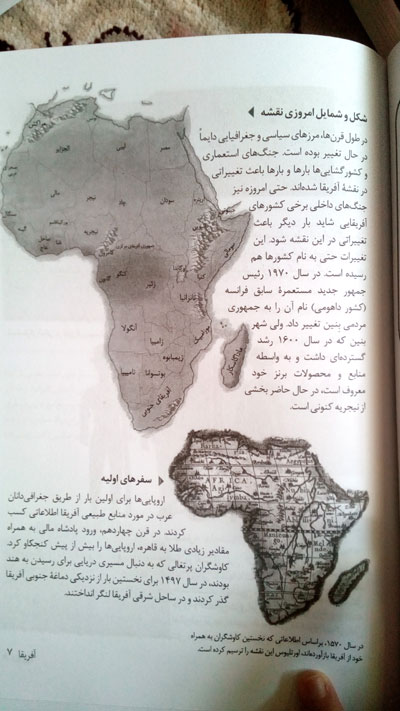 شکل و شمایل امروزی نقشه
در طول قرن‌ها، مرزهای سیاسی و جغرافیایی دایماً
در حال تغییر بوده است. جنگ‌های استعماری
و کشورگشایی‌ها بارها و بارها باعث تغییراتی
در نقشهٔ آفریقا شده‌اند. حتی امروزه نیز
جنگ‌های داخلی برخی کشورهای
آفریقایی شاید بار دیگر باعث
تغییراتی در این نقشه شود. این
تغییرات حتی به نام کشورها هم
رسیده است. در سال ۱۹۷۰ رئیس
جمهور جدید مستعمرهٔ سابق فرانسه
(کشور داهومی) نام آن را به جمهوری
مردمی بنین تغییر داد. ولی شهر
بنین که در سال ۱۶۰۰ رشد
گسترده‌ای داشت و به واسطه
منابع و محصولات برنز خود
معروف است، در حال حاضر بخشی
از نیجریه کنونی است.
الجزایر
لیبی
مصر
مالی
نیجر
چاد
سودان
اریتره
اتیوپی
سومالی
نیجریه
کنیا
اوگاندا
گابون
کنگو
زئیر
تانزانیا
آنگولا
زامبیا
موزامبیک
زیمبابوه
نامیبیا
بوتسوانا
ماداگاسکار
آفریقای جنوبی
سفرهای اولیه
اروپایی‌ها برای اولین بار از طریق جغرافی‌دانان
عرب در مورد منابع طبیعی آفریقا اطلاعاتی کسب
کردند. در قرن چهاردهم، ورود پادشاه مالی به همراه
مقادیر زیادی طلا به قاهره، اروپایی‌ها را بیش از پیش کنجکاو کرد.
کاوشگران پرتغالی که به دنبال مسیری دریایی برای رسیدن به هند
بودند، در سال ۱۴۹۷ برای نخستین بار از نزدیکی دماغهٔ جنوبی آفریقا
گذر کردند و در ساحل شرقی آفریقا لنگر انداختند.
AFRICA
در سال ۱۵۷۰، براساس اطلاعاتی که نخستین کاوشگران به همراه
خود از آفریقا بازآورده‌اند، اورتلیوس این نقشه را ترسیم کرده است.
آفریقا ۷